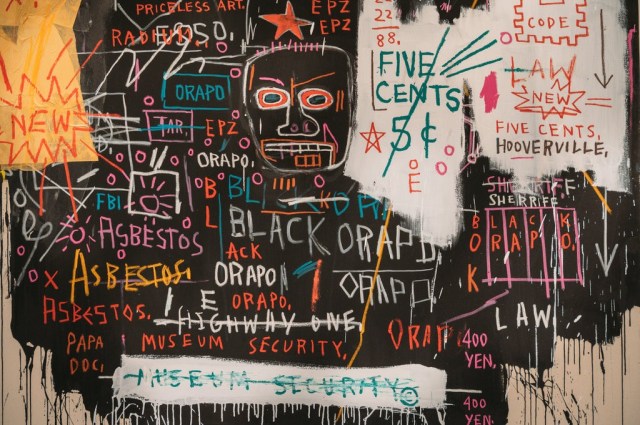 PRICELESS ART.
EPZ
EPZ
22
88.
CODE
FIVE
CENTS
5¢
LAW
NEW
FIVE CENTS,
HOOVERVILLE,
NEW
ORAPO
TAR
EPZ
ORAPO,
FBI
ASBESTOS
BLACK ORAPO
ACK
ORAPO
ORAPO
ORAPO,
SHERIFF
SHERIFF
BLACK
ORAPO
LAW
X ASBESTOS.
ASBESTOS.
HIGHWAY ONE
PAPA
DOC,
MUSEUM SECURITY,
400
YEN,
MUSEUM SECURITY ©
400
YEN.